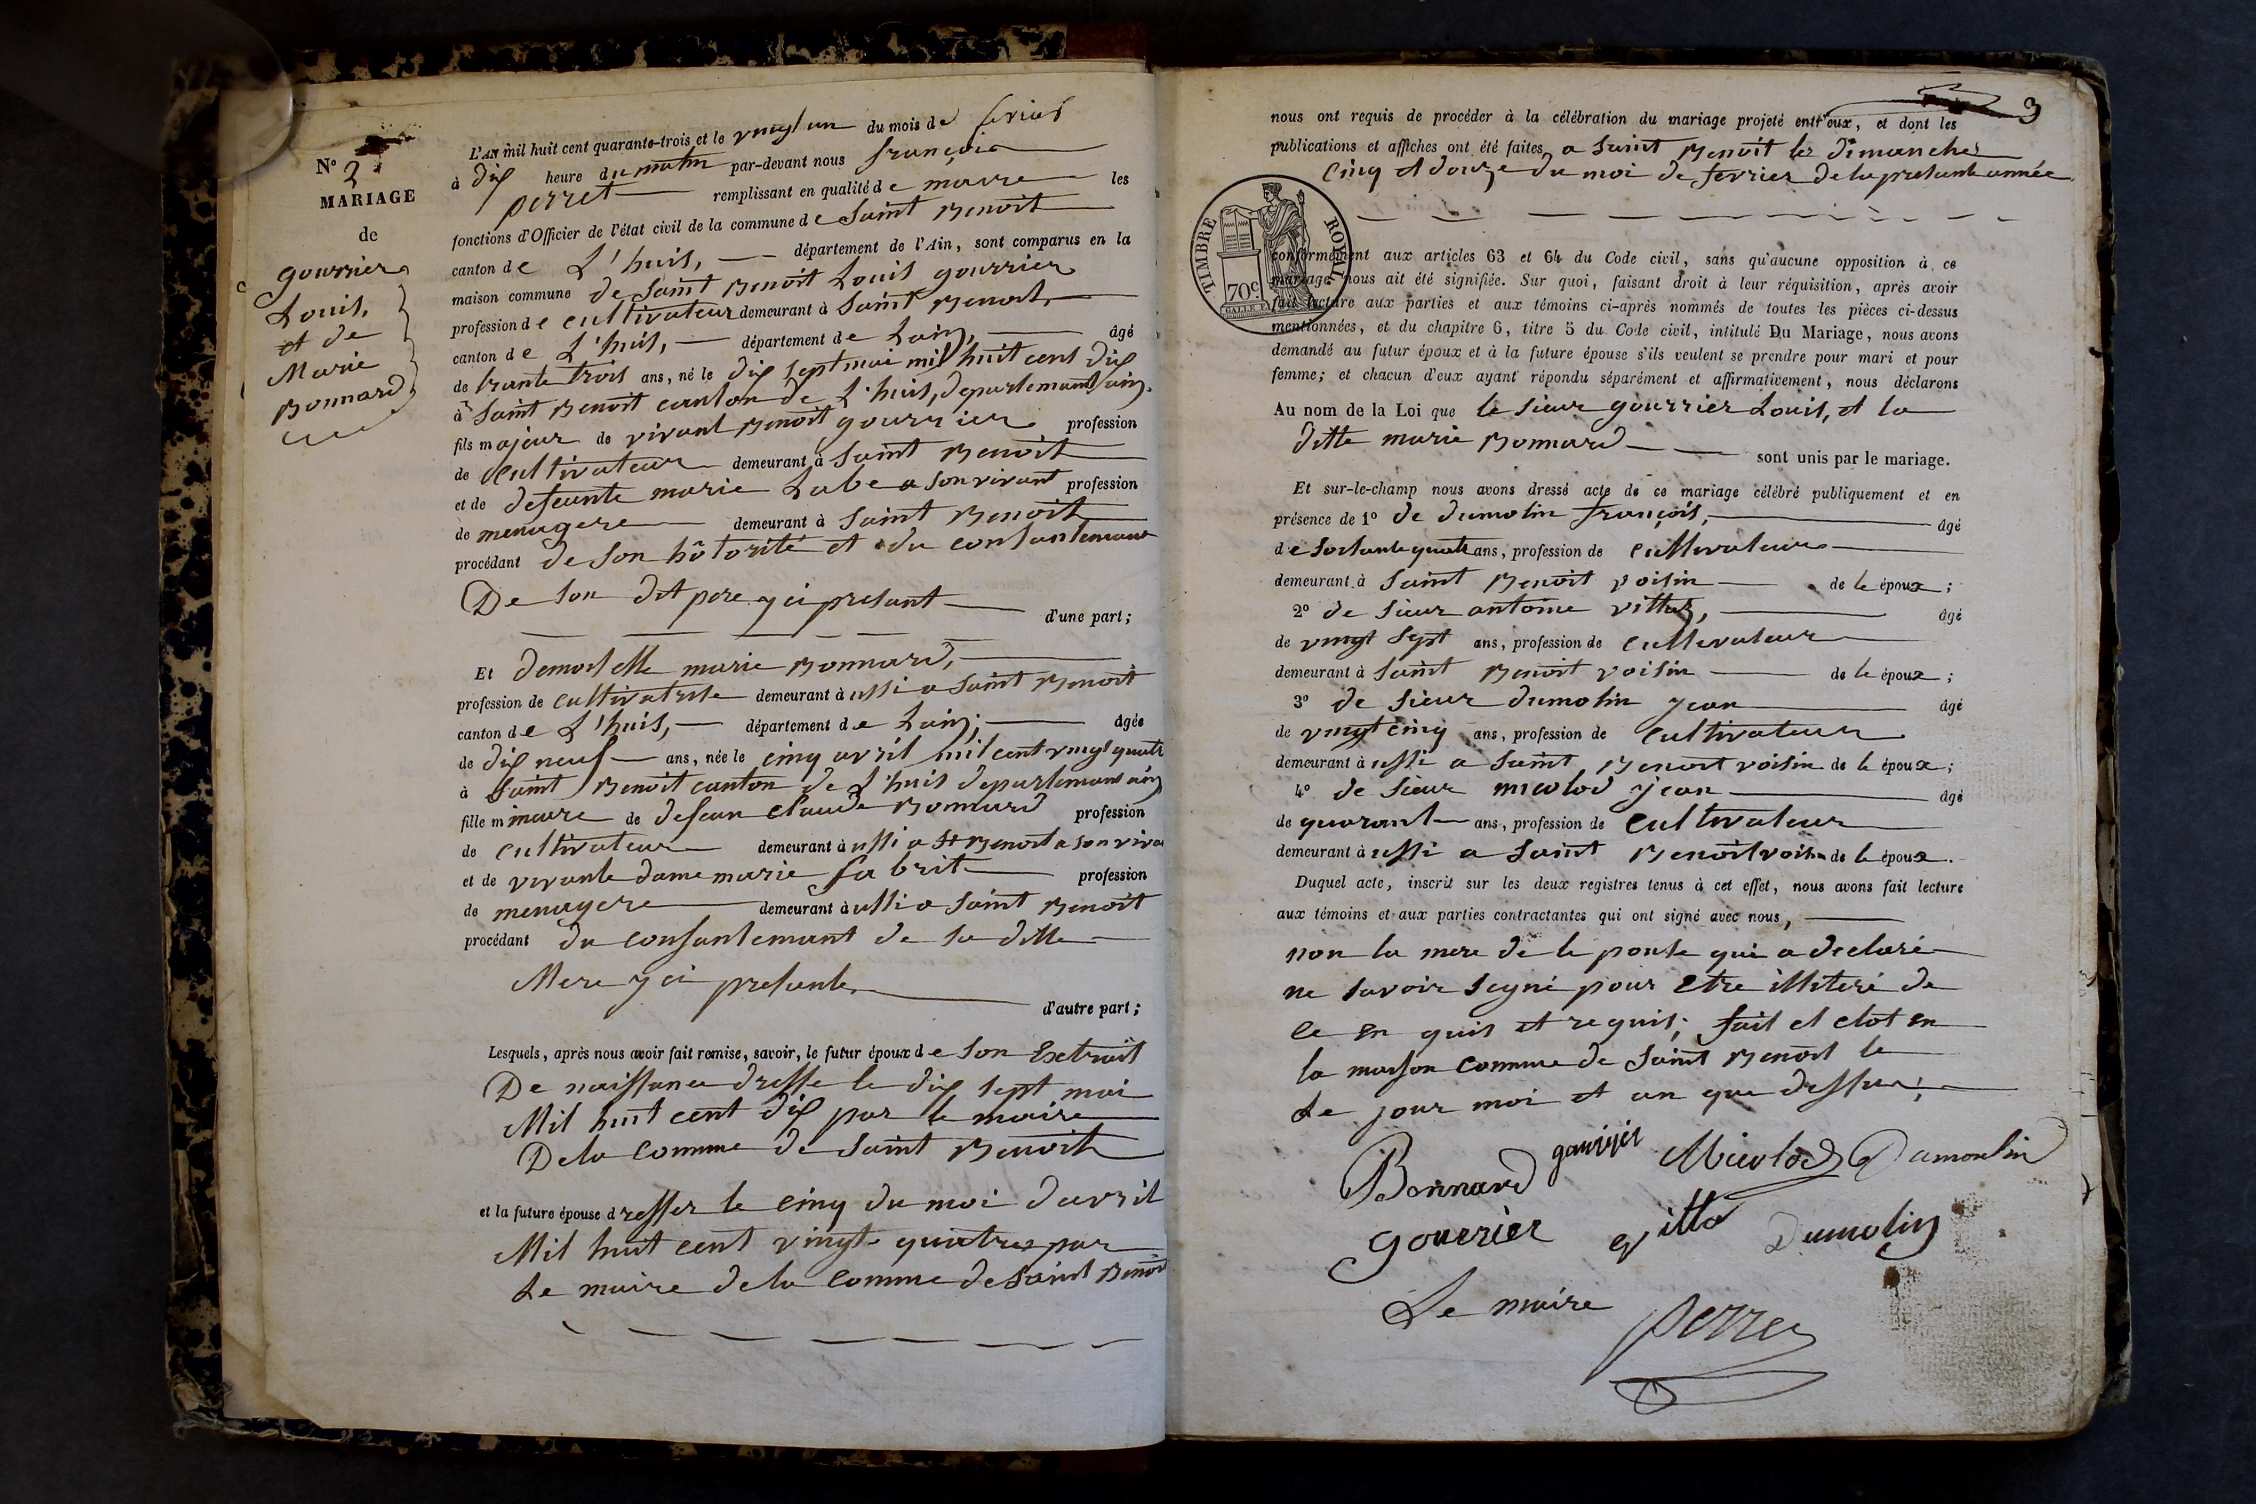 N° 2
MARIAGE
de
gourrier
Louis,
et de
Marie
Bonnard
L'AN mil huit cent quarante-trois et le vingt un du mois de fevrier
à dix heure du matin par-devant nous françois
perret remplissant en qualité de maire les
fonctions d'Officier de l'état civil de la commune de Saint Benoit
canton de L'huis, département de l'Ain, sont comparus en la
maison commune de Saint Benoit Louis gourrier
profession de cultivateur demeurant à Saint Benoit
canton de L'huis, département de Lain, âgé
de trante trois ans, né le dix sept mai mil huit cent dix
à Saint Benoit canton de L'huis, departemant ain.
fils majeur de vivant Benoit gourrier profession
de cultivateur demeurant à Saint Benoit
et de defeunte marie Labe a son vivant profession
de menagere demeurant à Saint Benoit
procédant de son hôtorité et du consantemant
De son dit pere y ci presant d'une part;
Et demoiselle marie Bonnard,
profession de cultivatrise demeurant à ussi a Saint Benoit
canton de L'huis, département de Lain; âgée
de dix neuf ans, née le cinq avril mil cent vingt quatr
à Saint Benoit canton de L'huis departemans ain
fille minaure de defean claude Bonnard profession
de cultivateur demeurant à ussi a St Benoit a son viva
et de vivante dame marie fabrit profession
de menagere demeurant à ussi a Saint Benoit
procédant du consantemant de sa ditte
Mere y ci presante d'autre part;
Lesquels, après nous avoir fait remise, savoir, le futur époux de son Extrait
De naissance dresse le dix sept mai
Mil huit cent dix par le maire
De la Commune de Saint Benoit
et la future épouse dresser le cinq du moi davril
Mil huit cent vingt quatres par
Le maire de la Comme de Saint Benoit
3
nous ont requis de procéder à la célébration du mariage projeté entr'eux, et dont les
publications et affiches ont été faites a Saint Benoit les dimanches
Cinq et douze du moi de fevrier de la presante année
TIMBRE ROYAL
70c.
conformément aux articles 63 et 64 du Code civil, sans qu'aucune opposition à ce
mariage nous ait été signifiée. Sur quoi, faisant droit à leur réquisition, après avoir
fait lecture aux parties et aux témoins ci-après nommés de toutes les pièces ci-dessus
mentionnées, et du chapitre 6, titre 5 du Code civil, intitulé Du Mariage, nous avons
demandé au futur époux et à la future épouse s'ils veulent se prendre pour mari et pour
femme; et chacun d'eux ayant répondu séparément et affirmativement, nous déclarons
Au nom de la Loi que le sieur gourrier Louis, et la
ditte marie Bonnard sont unis par le mariage.
Et sur-le-champ nous avons dressé acte de ce mariage célébré publiquement et en
présence de 1° de dumolin françois, âgé
de soisante quatr ans, profession de cultivateur
demeurant à Saint Benoit voisin de le époux;
2° de sieur antoine vittoz, âgé
de vingt sept ans, profession de cultevateur
demeurant à Saint Benoit voisin de le époux;
3° de sieur dumolin jean âgé
de vingt cinq ans, profession de cultivateur
demeurant à ussi a Saint Benoit voisin de le époux;
4° de sieur micolod jean âgé
de quarant ans, profession de cultivateur
demeurant à ussi a Saint Benoit voisin de le époux.
Duquel acte, inscrit sur les deux registres tenus à cet effet, nous avons fait lecture
aux témoins et aux parties contractantes qui ont signé avec nous,
non la mere de le pouse qui a declaré
ne savoir signé pour Etre illiteré de
ce en quis et requis; fait et clot en
la maison Commune de Saint Benoit le
Le jour moi et an que dessus;
Bonnard gourrier Micolod Dumoulin
gourrier vitto Dumolin
Le maire Perret